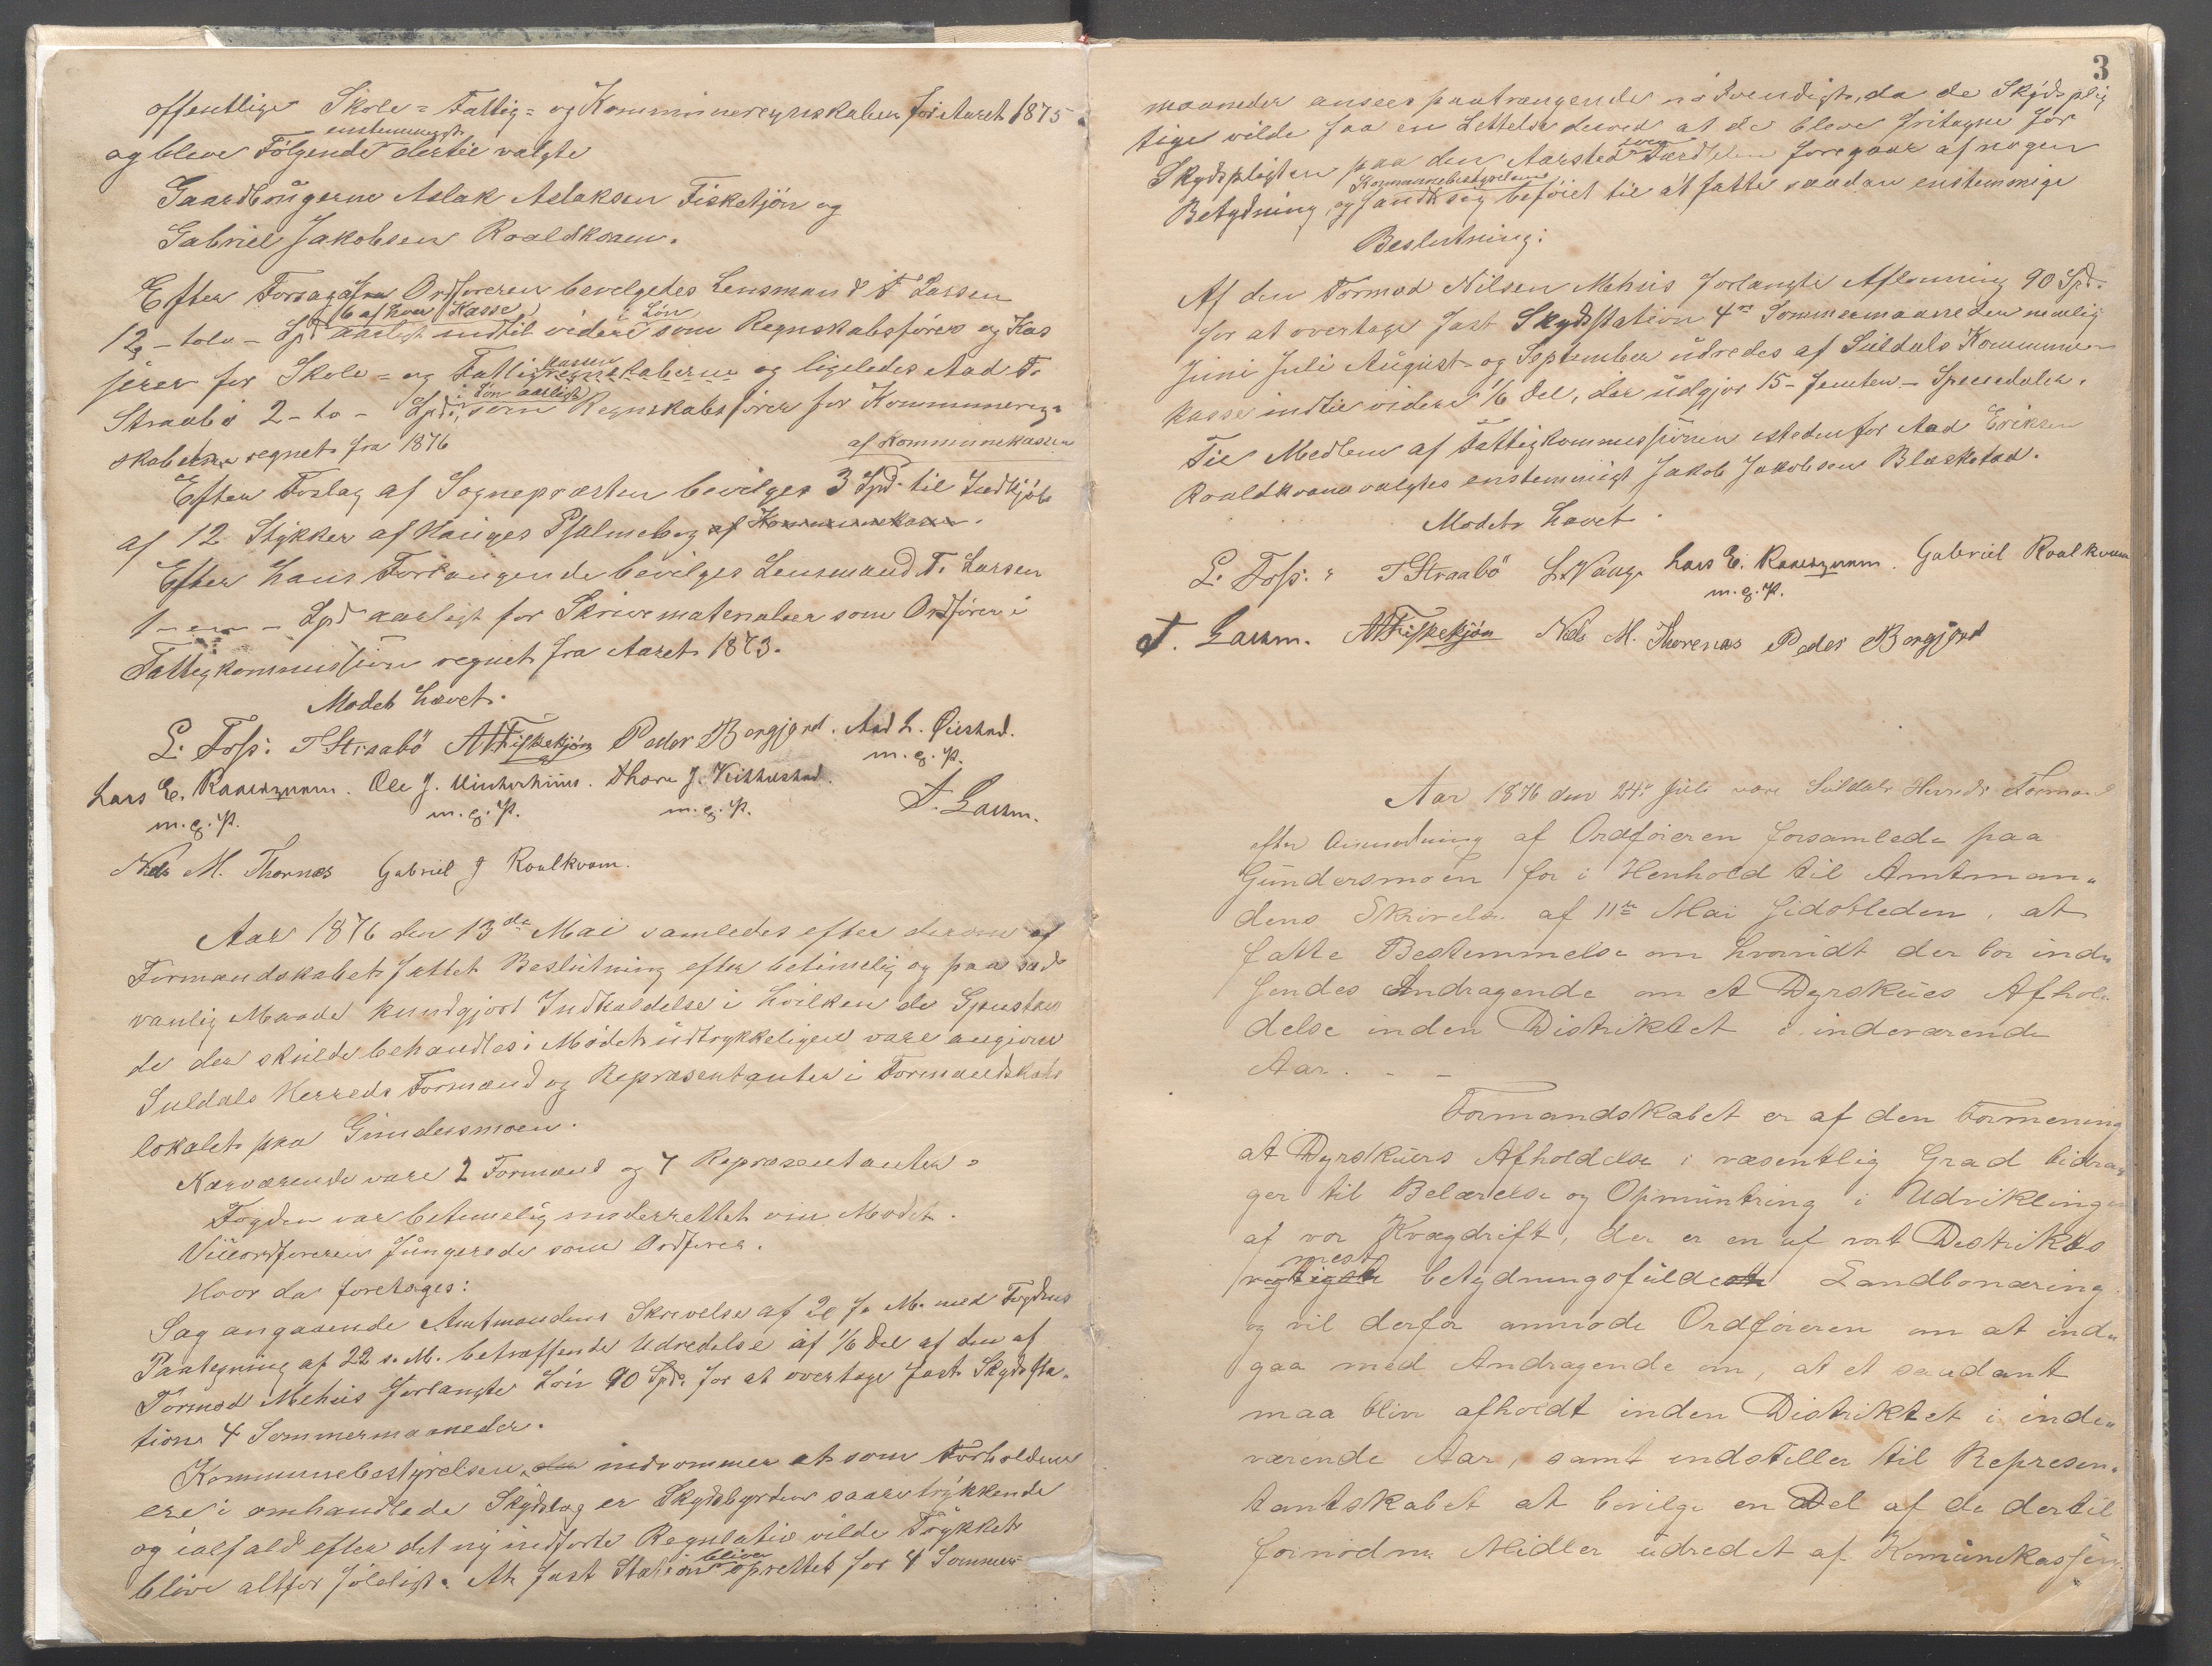 offentlige Skole= Fattig= og Kommuneregnskaber for Aaret 1875
enstemmigt
og bleve Følgende dertil valgte
Gaardbrugerne Aslak Aslaksen Fisketjön og
Gabriel Jakobsen Roaldkvam.
Efter Forslag fra Ordføreren bevilgedes Lensmand T. Larsen
6 af hver Kasse i Løn
12 - tolv - Spd aarligt indtil videre som Regnskabsfører og Kas
serer for Skole= og Fattigkassen og ligeledes Aad T.
i Løn aarligt
Straabø 2 - to - Spd, som Regnskabsfører for Kommunereg=
skaberne regnet fra 1876
af Kommunekassen
Efter Forslag af Sognepræsten bevilges 3 Spd. til Indkjøb
af 12 Stykker af Hauges Psalmebog af Kommunekassen.
Efter hans Forlangende bevilges Lensmand T. Larsen
1 - en - Spd aarligt for Skrivematerialier som Ordfører i
Fattigkommission regnet fra Aaret 1873.
Mødet hævet.
L. Foss. T Straabö A Fisketjön Peder Bergjord. Aad L. Øiestad.
m. p. P.
Lars E. Kaarhuus. Ole J. Vinterhuus. Thore J. Veithustad. T. Larsen.
m. p. P. m. p. P. m. p. P.
Nils M. Thornæs Gabriel J Roalkvam.
Aar 1876 den 13de Mai samledes efter derom af
Formandskabet fattet Beslutning efter betimelig og paa sæd
vanlig Maade kundgjort Indkaldelse i hvilken de Gjenstan
de der skulde behandles i Mødet udtrykkeligen vare angivne
Suldals Herreds Formænd og Repræsentanter i Formandskabs
lokalet paa Gundersmoen.
Nærværende vare 2 Formænd og 7 Repræsentanter.
Fogden var betimelig underrettet om Mødet.
Viceordføreren fungerede som Ordfører.
Hvor da foretages:
Sag angaaende Amtmandens Skrivelse af 20 f. M. med Fogdens
Paategning af 22 s. M. betræffende Udredelse af 1/6 Del af den af
Tormod Mehus forlangte Løn 90 Spd. for at overtage fast Skydssta=
tion 4 Sommermaaneder.
Kommunebestyrelsen den indrømmer at som Forholdene
ere i omhandlede Skydslag er Skydsbyrden saare trykkende
og ialfald efter det ny indførte Regulativ vilde Trykket
bliver
blive altfor føleligt. At fast Station oprettet for 4 Sommer=
3
maaneder ansees paatrængende nødvendigt, da de Skydsplig
tige vilde faa en Lettelse derved at de bleve fritagne for
Skydspligten paa den Aarstid Færdselen foregaar af nogen
Kommunebestyrelsen
Betydning, og fandt sig beføiet til at fatte saadan enstemmige
Beslutning:
Af den Tormod Nilsen Mehus forlangte Aflønning 90 Spd.
for at overtage fast Skydsstation 4re Sommermaaneder nemlig
Juni Juli August og September udredes af Suldals Kommune=
kasse indtil videre 1/6 Del, der udgjør 15 - femten - Speciedaler.
Til Medlem af Fattigkommissionen istedenfor Aad Eriksen
Roaldkvam valgtes enstemmigt Jakob Jakobsen Bleskestad.
Mødet hævet.
L. Foss. T Straabö L. Vaage Lars E. Kaarhuus. Gabriel Roalkvam
m. p. P.
T. Larsen. A Fisketjön Nils M. Thornæs Peder Bergjord
Aar 1876 den 24de Juli vare Suldals Herreds Formænd
efter Anmodning af Ordføreren forsamlede paa
Gundersmoen for i Henhold til Amtman=
dens Skrivelse af 11te Mai sidstleden, at
fatte Bestemmelse om hvorvidt der bør ind=
sendes Andragende om et Dyrskues Afhol=
delse inden Distriktet i indeværende
Aar. - -
Formandskabet er af den Formening
at Dyrskuers Afholdelse i væsentlig Grad bidra=
ger til Belærelse og Opmuntring i Udviklingen
af vor Kvægdrift, der er en af vort Distrikts
mest
vigtigste betydningsfuldeste Landbonæring.
og vil derfor anmode Ordføreren om at ind=
gaa med Andragende om, at et saadant
maa blive afholdt inden Distriktet i inde=
værende Aar, samt indstiller til Represen=
tantskabet at bevilge en Del af de dertil
fornødne Midler udredet af Komunekassen.